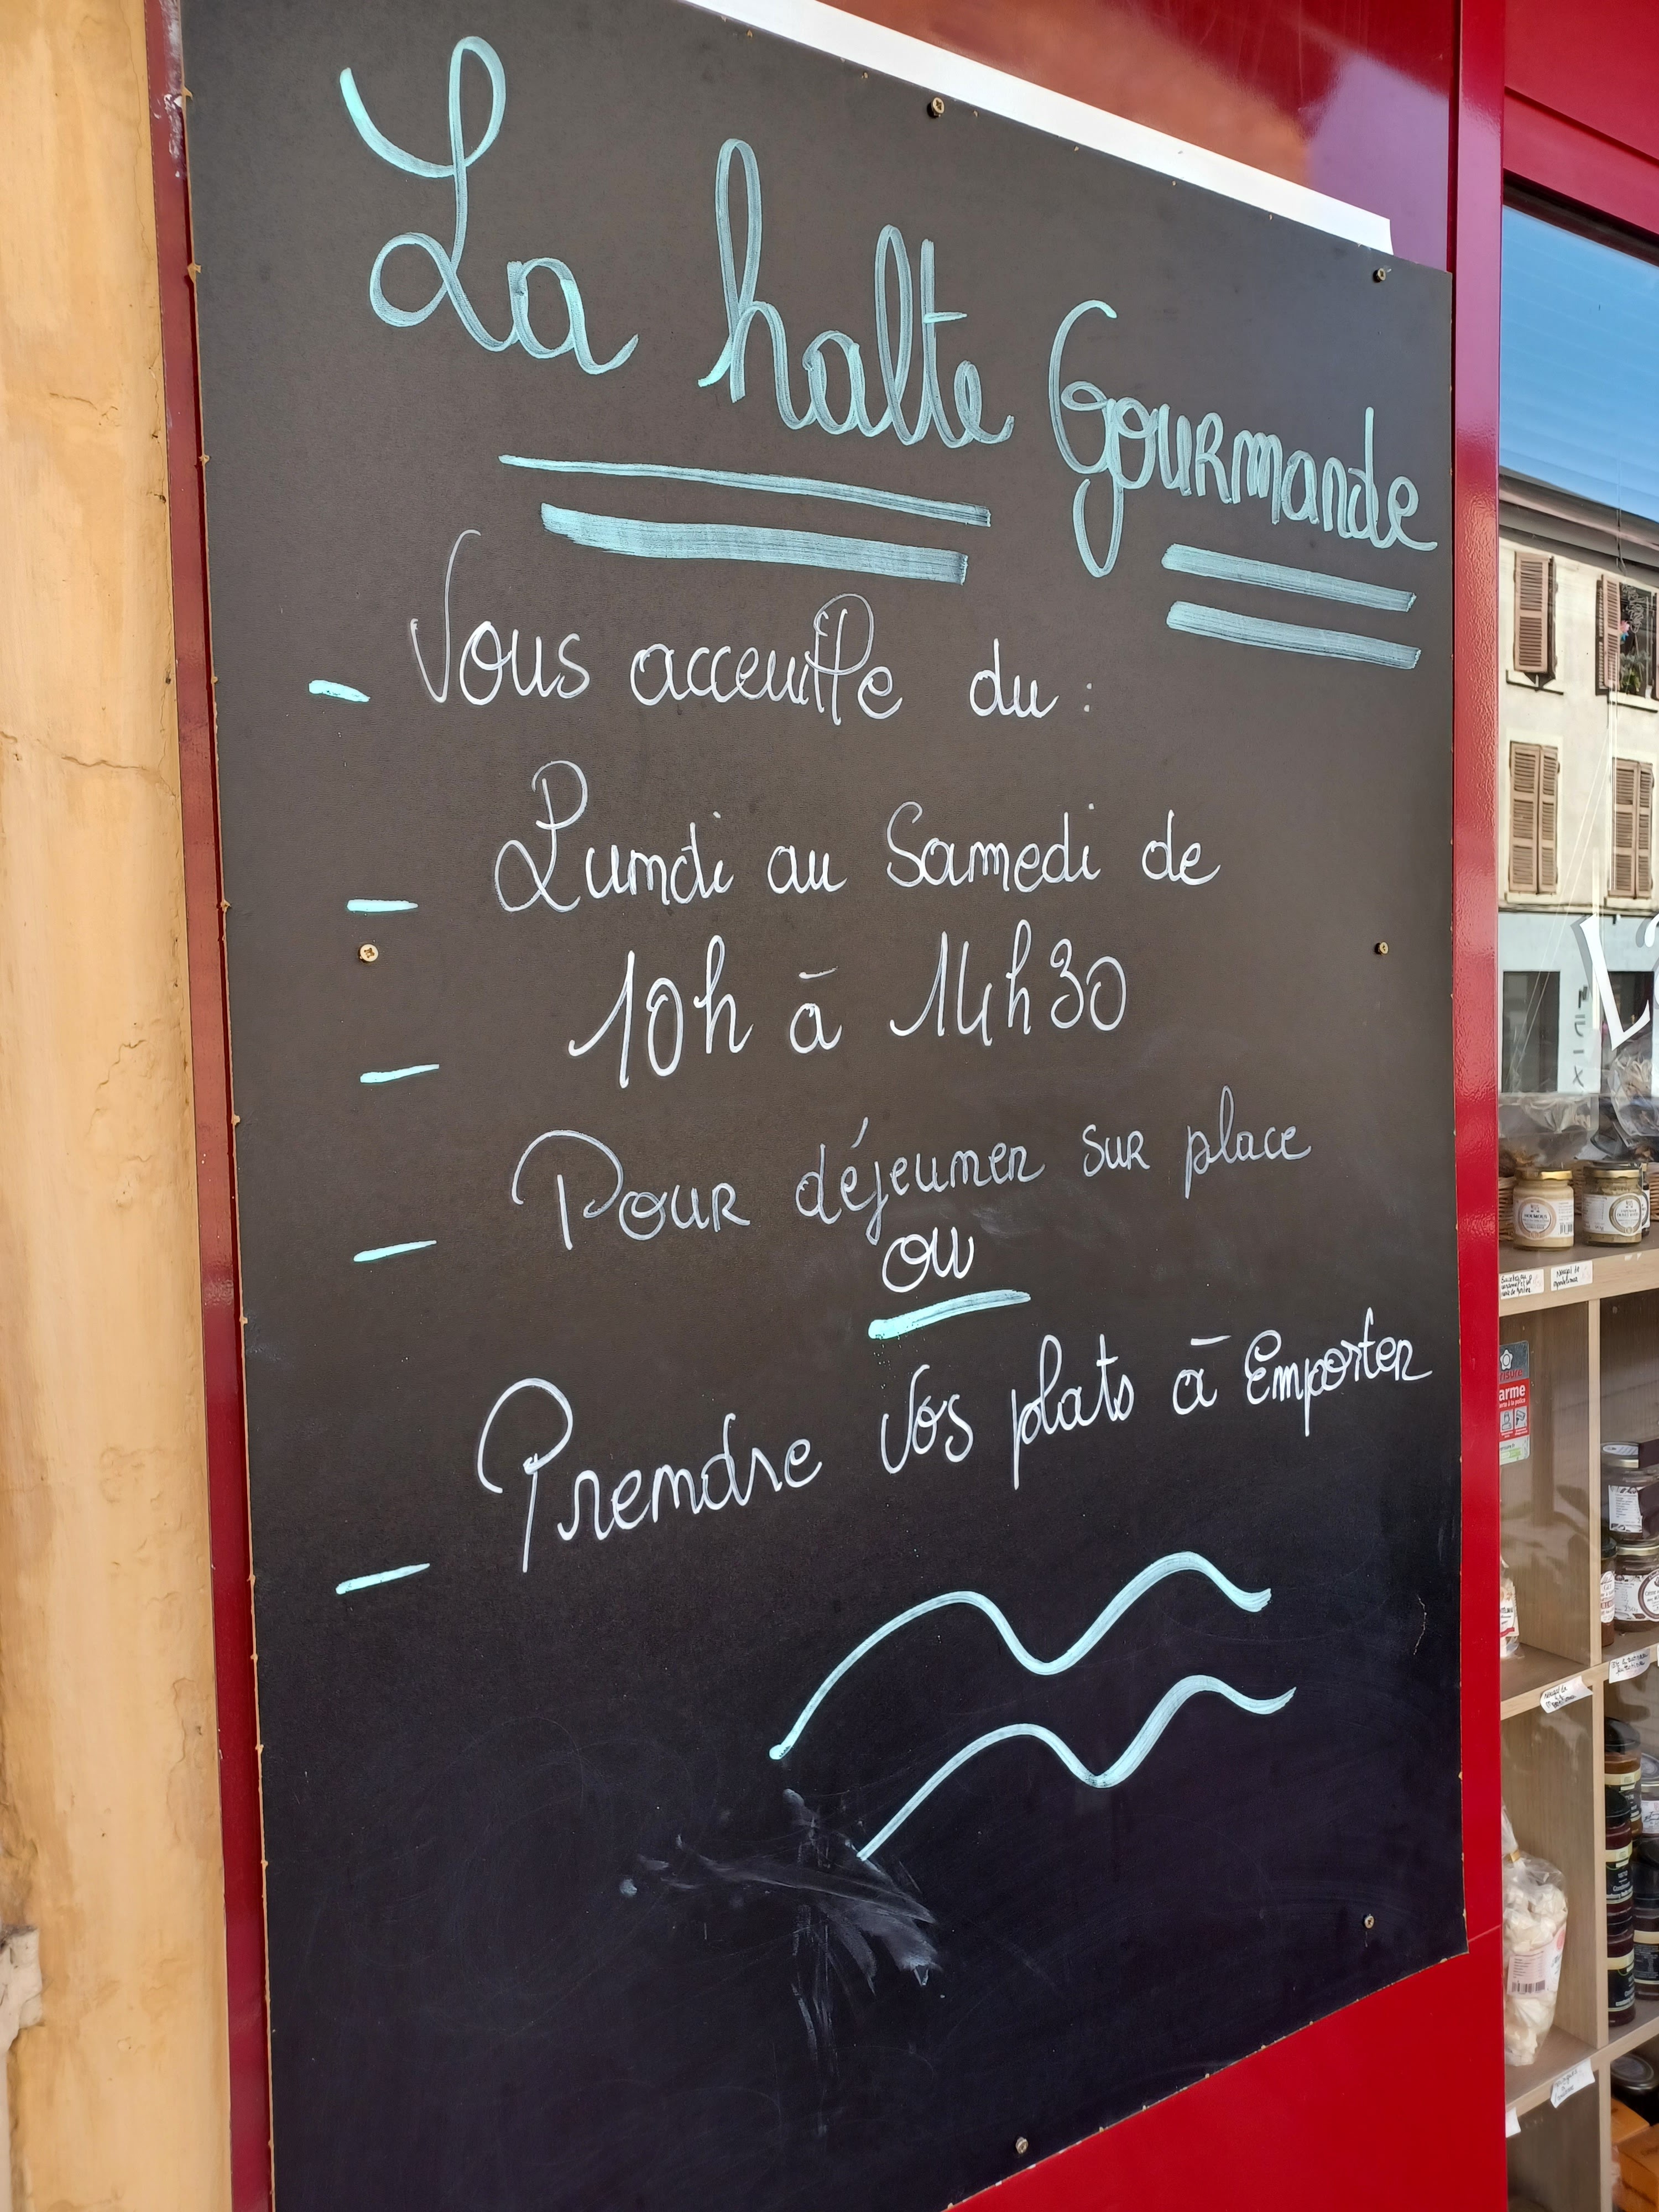 La halte Gourmande
Vous acceuille du :
Lundi au Samedi de
10h à 14h30
Pour déjeuner sur place
ou
Prendre vos plats à Emporter